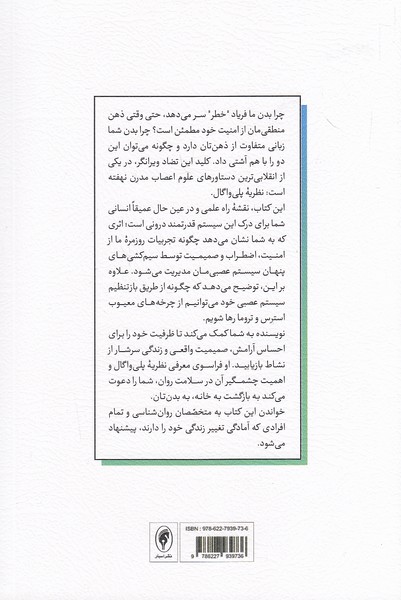 چرا بدن ما فریاد "خطر" سر می‌دهد، حتی وقتی ذهن
منطقی‌مان از امنیت خود مطمئن است؟ چرا بدن شما
زبانی متفاوت از ذهن‌تان دارد و چگونه می‌توان این
دو را با هم آشتی داد. کلید این تضاد ویرانگر، در یکی
از انقلابی‌ترین دستاوردهای علوم اعصاب مدرن نهفته
است: نظریهٔ پلی‌واگال.
این کتاب، نقشهٔ راه علمی و در عین حال عمیقاً انسانی
شما برای درک این سیستم قدرتمند درونی است؛ اثری
که به شما نشان می‌دهد چگونه تجربیات روزمرهٔ ما از
امنیت، اضطراب و صمیمیت توسط سیم‌کشی‌های
پنهان سیستم عصبی‌مان مدیریت می‌شود. علاوه
بر این، توضیح می‌دهد که چگونه از طریق بازتنظیم
سیستم عصبی خود می‌توانیم از چرخه‌های معیوب
استرس و تروما رها شویم.
نویسنده به شما کمک می‌کند تا ظرفیت خود را برای
احساس آرامش، صمیمیت واقعی و زندگی سرشار از
نشاط بازیابید. او فراسوی معرفی نظریهٔ پلی‌واگال و
اهمیت چشمگیر آن در سلامت روان، شما را دعوت
می‌کند به بازگشت به خانه، به بدن‌تان.
خواندن این کتاب به متخصّصان روان‌شناسی و تمام
افرادی که آمادگی تغییر زندگی خود را دارند، پیشنهاد
می‌شود.
ISBN : 978-622-7939-73-6
9 786227 939736
نشر اسبار